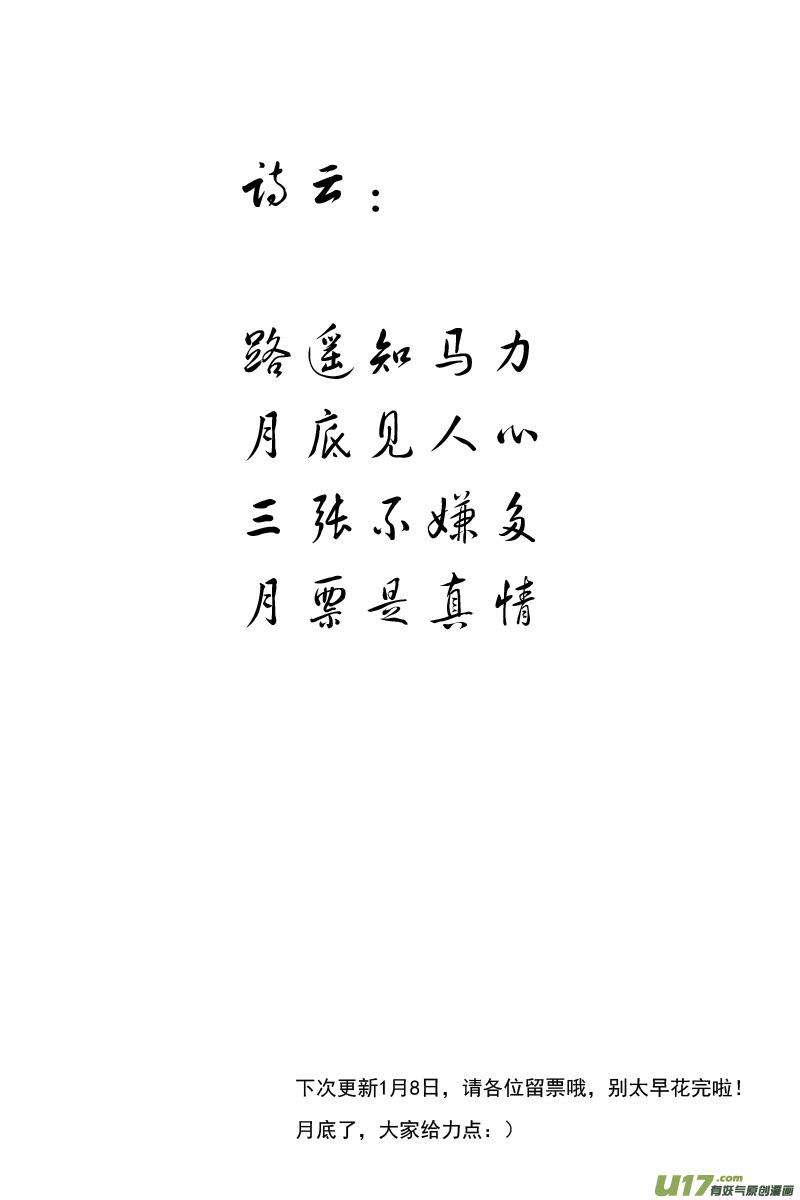 诗云：
路遥知马力
月底见人心
三张不嫌多
月票是真情
下次更新1月8日，请各位留票哦，别太早花完啦！
月底了，大家给力点：）
U17.com
有妖气原创漫画